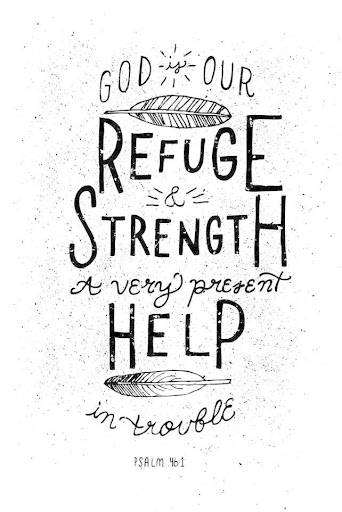 GOD is OUR
REFUGE
&
STRENGTH
A very present
HELP
in trouble
PSALM 46:1